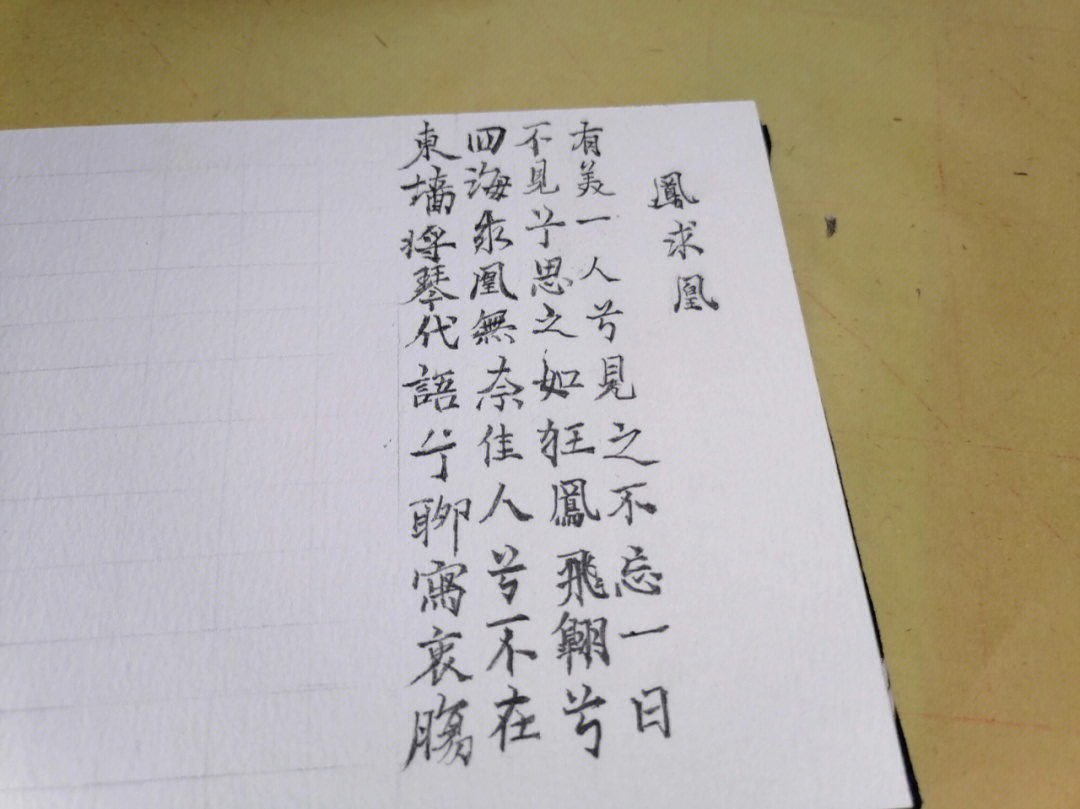 鳳求凰
有美一人兮見之不忘一日
不見兮思之如狂鳳飛翱兮
四海求凰無奈佳人兮不在
東墙將琴代語兮聊寫衷腸